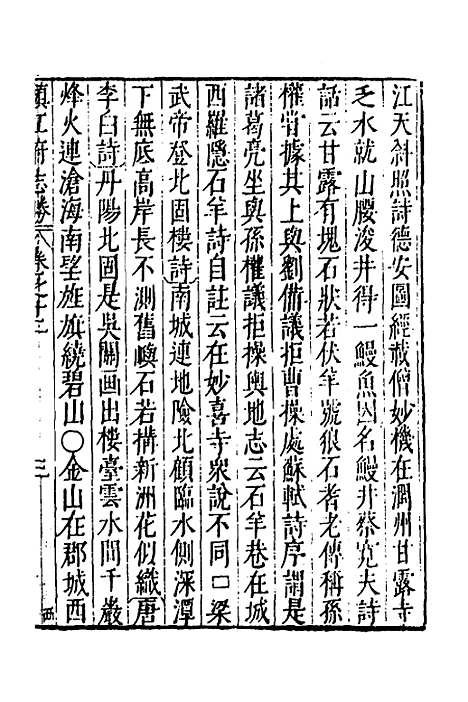 江天斜照詩德安圖經載僧妙機在潤州甘露寺
乏水就山腰浚井得一鰻魚因名鰻井蔡寬夫詩
話云甘露有塊石狀若伏羊號狠石者老傳稱孫
權嘗據其上與劉備議拒曹操處蘇軾詩序謂是
諸葛亮坐與孫權議拒操輿地志云石羊巷在城
西羅隱石羊詩自註云在妙喜寺衆說不同口梁
武帝登北固樓詩南城連地險北顧臨水側深潭
下無底高岸長不測舊嶼石若構新洲花似織唐
李白詩丹陽北固是吳關画出樓臺雲水間千巖
烽火連滄海南望旌旗繞碧山〇金山在郡城西
鎮江府志勝 卷之十二 三